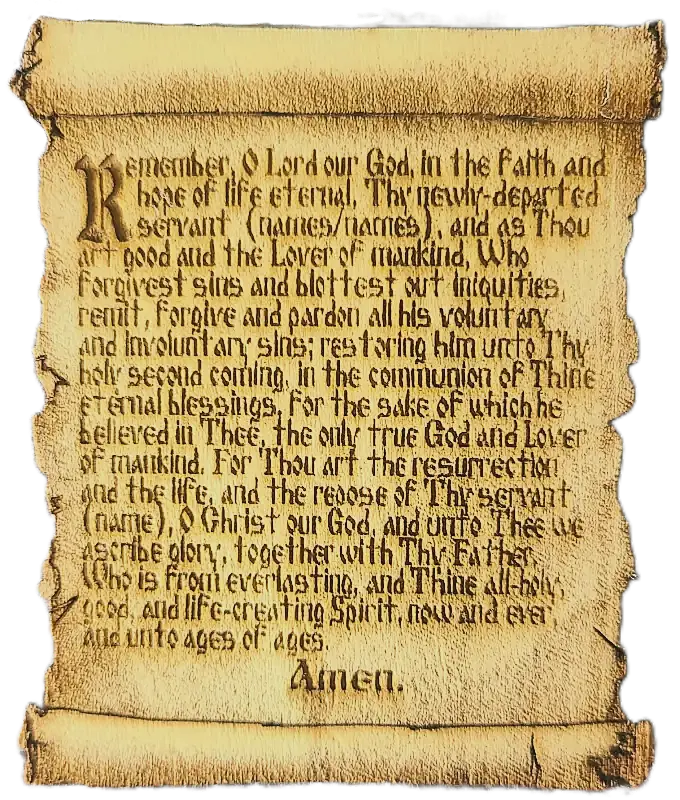 Remember, O Lord our God, in the faith and
hope of life eternal, Thy newly-departed
servant (names/names), and as Thou
art good and the Lover of mankind, Who
forgivest sins and blottest out iniquities,
remit, forgive and pardon all his voluntary
and involuntary sins; restoring him unto Thy
holy second coming, in the communion of Thine
eternal blessings, for the sake of which he
believed in Thee, the only true God and Lover
of mankind. For Thou art the resurrection
and the life, and the repose of Thy servant
(name), O Christ our God, and unto Thee we
ascribe glory, together with Thy Father,
Who is from everlasting, and Thine all-holy,
good, and life-creating Spirit, now and ever,
and unto ages of ages.
Amen.